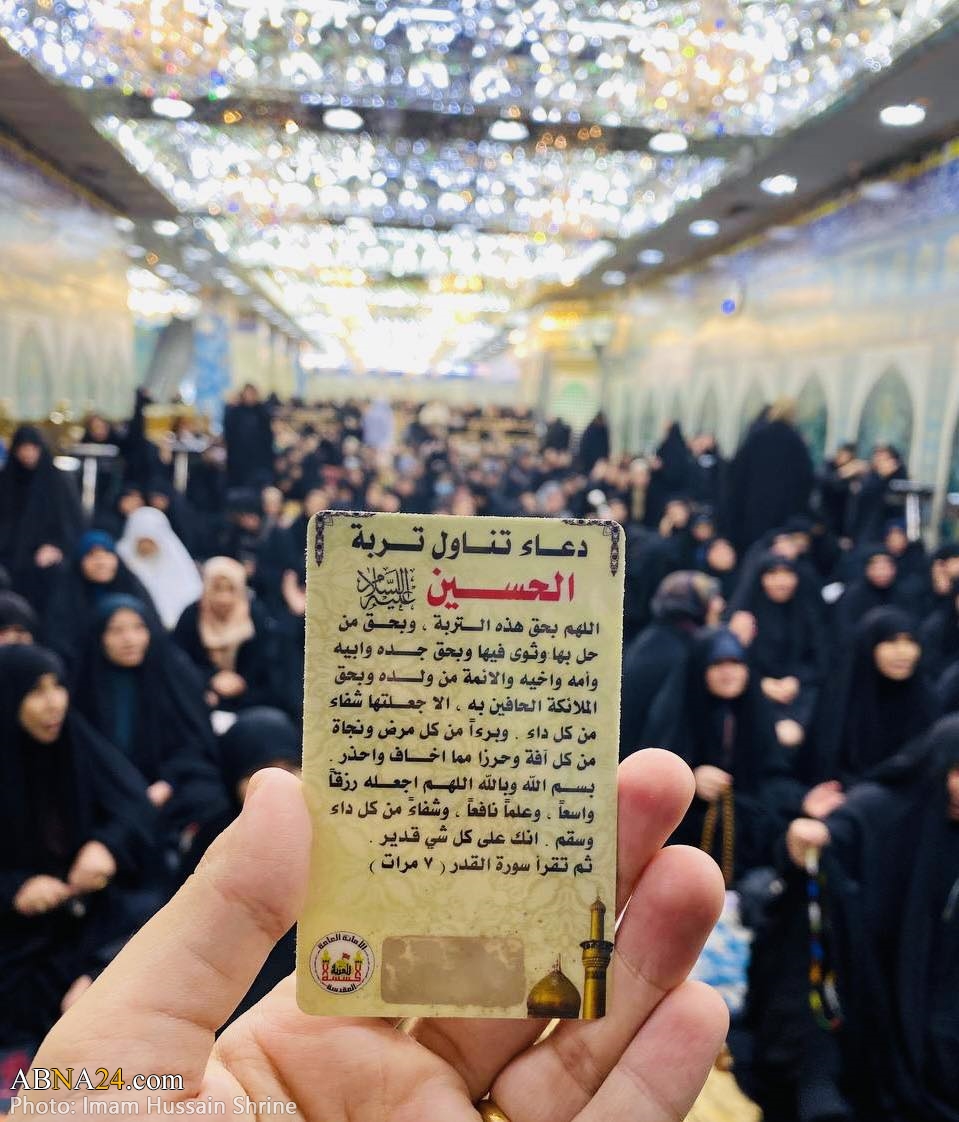 دعـاء تنـاول تـربة
الحسـين عليه السلام
اللهم بحق هذه التربة ، وبحق من
حل بها وثوى فيها وبحق جده وابيه
وأمه واخيه والائمة من ولده وبحق
الملائكة الحافين به ، الا جعلتها شفاء
من كل داء . وبرءاً من كل مرض ونجاة
من كل آفة وحرزا مما اخاف واحذر .
بسم الله وبالله اللهم اجعله رزقاً
واسعاً ، وعلماً نافعاً ، وشفاءً من كل داء
وسقم . انك على كل شي قدير .
ثم تقرأ سورة القدر ( ٧ مرات )
الأمانة العامة
للعتبة
الحسينية
المقدسة
ABNA24.com
Photo: Imam Hussain Shrine